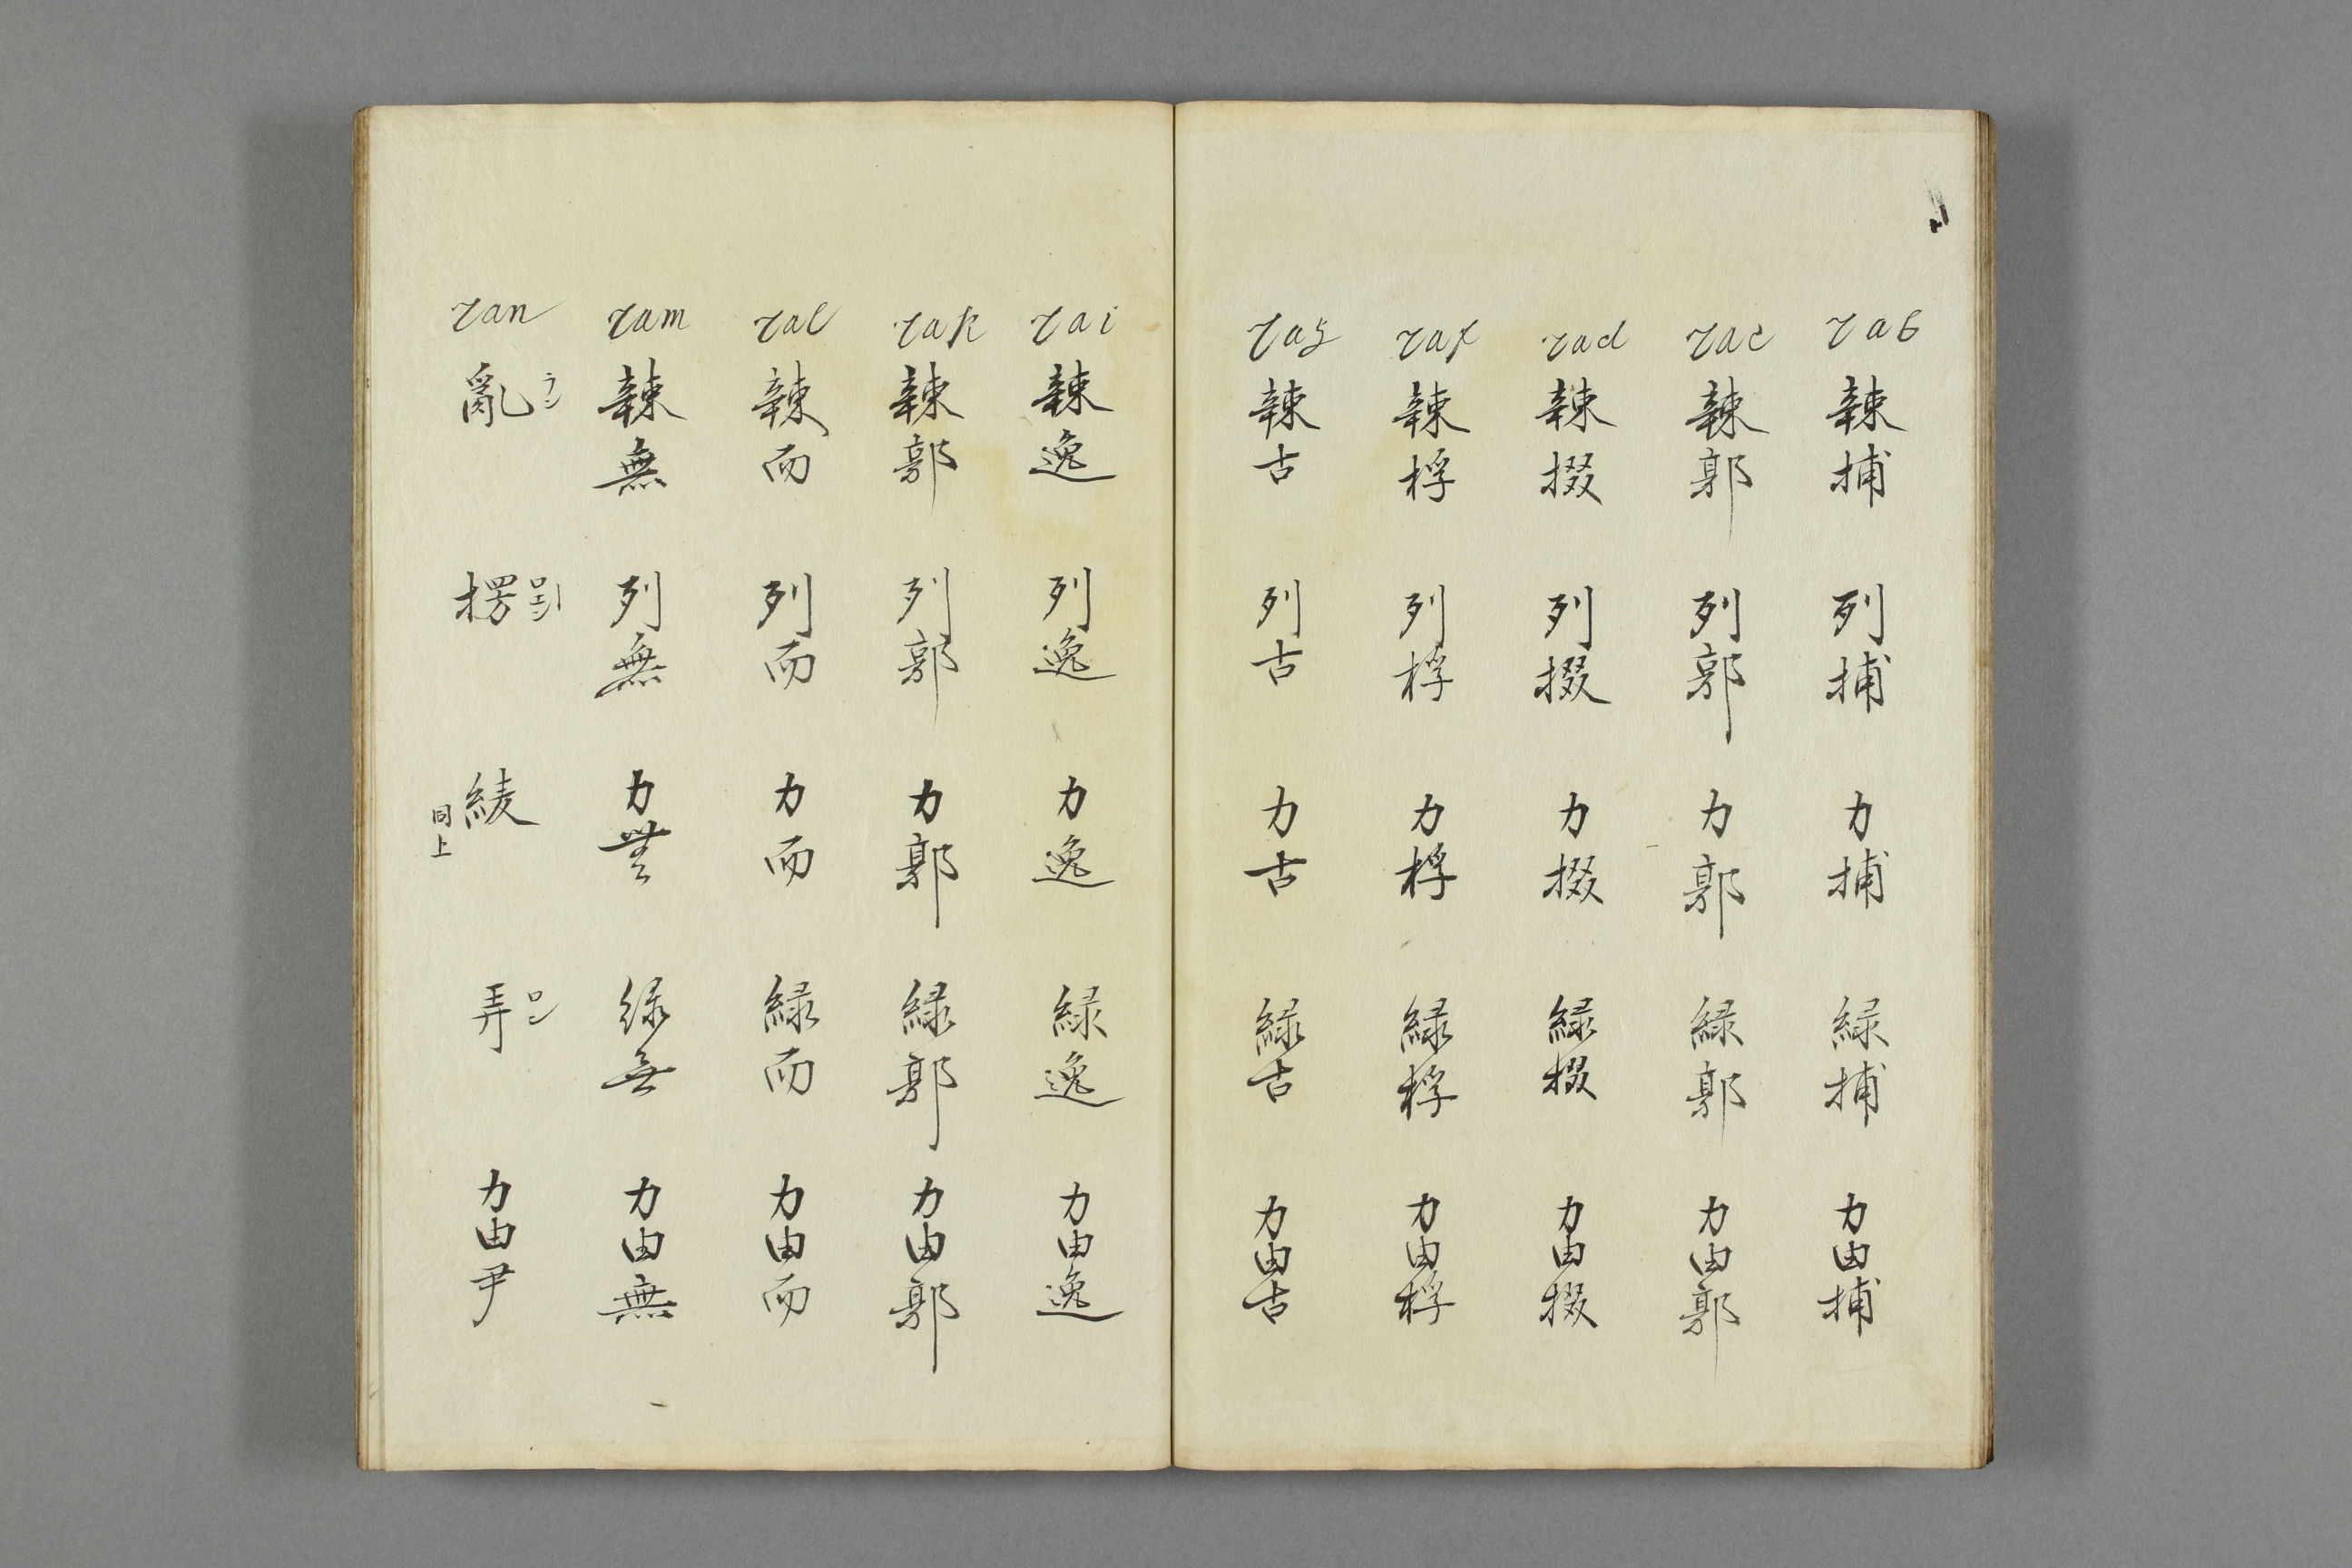 rab 辣捕 列捕 力捕 緑捕 力由捕
rac 辣郭 列郭 力郭 緑郭 力由郭
rad 辣掇 列掇 力掇 緑掇 力由掇
raf 辣桴 列桴 力桴 緑桴 力由桴
rag 辣古 列古 力古 緑古 力由古
rai 辣逸 列逸 力逸 緑逸 力由逸
rak 辣郭 列郭 力郭 緑郭 力由郭
ral 辣而 列而 力而 緑而 力由而
ram 辣無 列無 力無 緑無 力由無
ran 亂ラン 楞ロエン 綾同上 弄ロン 力由尹